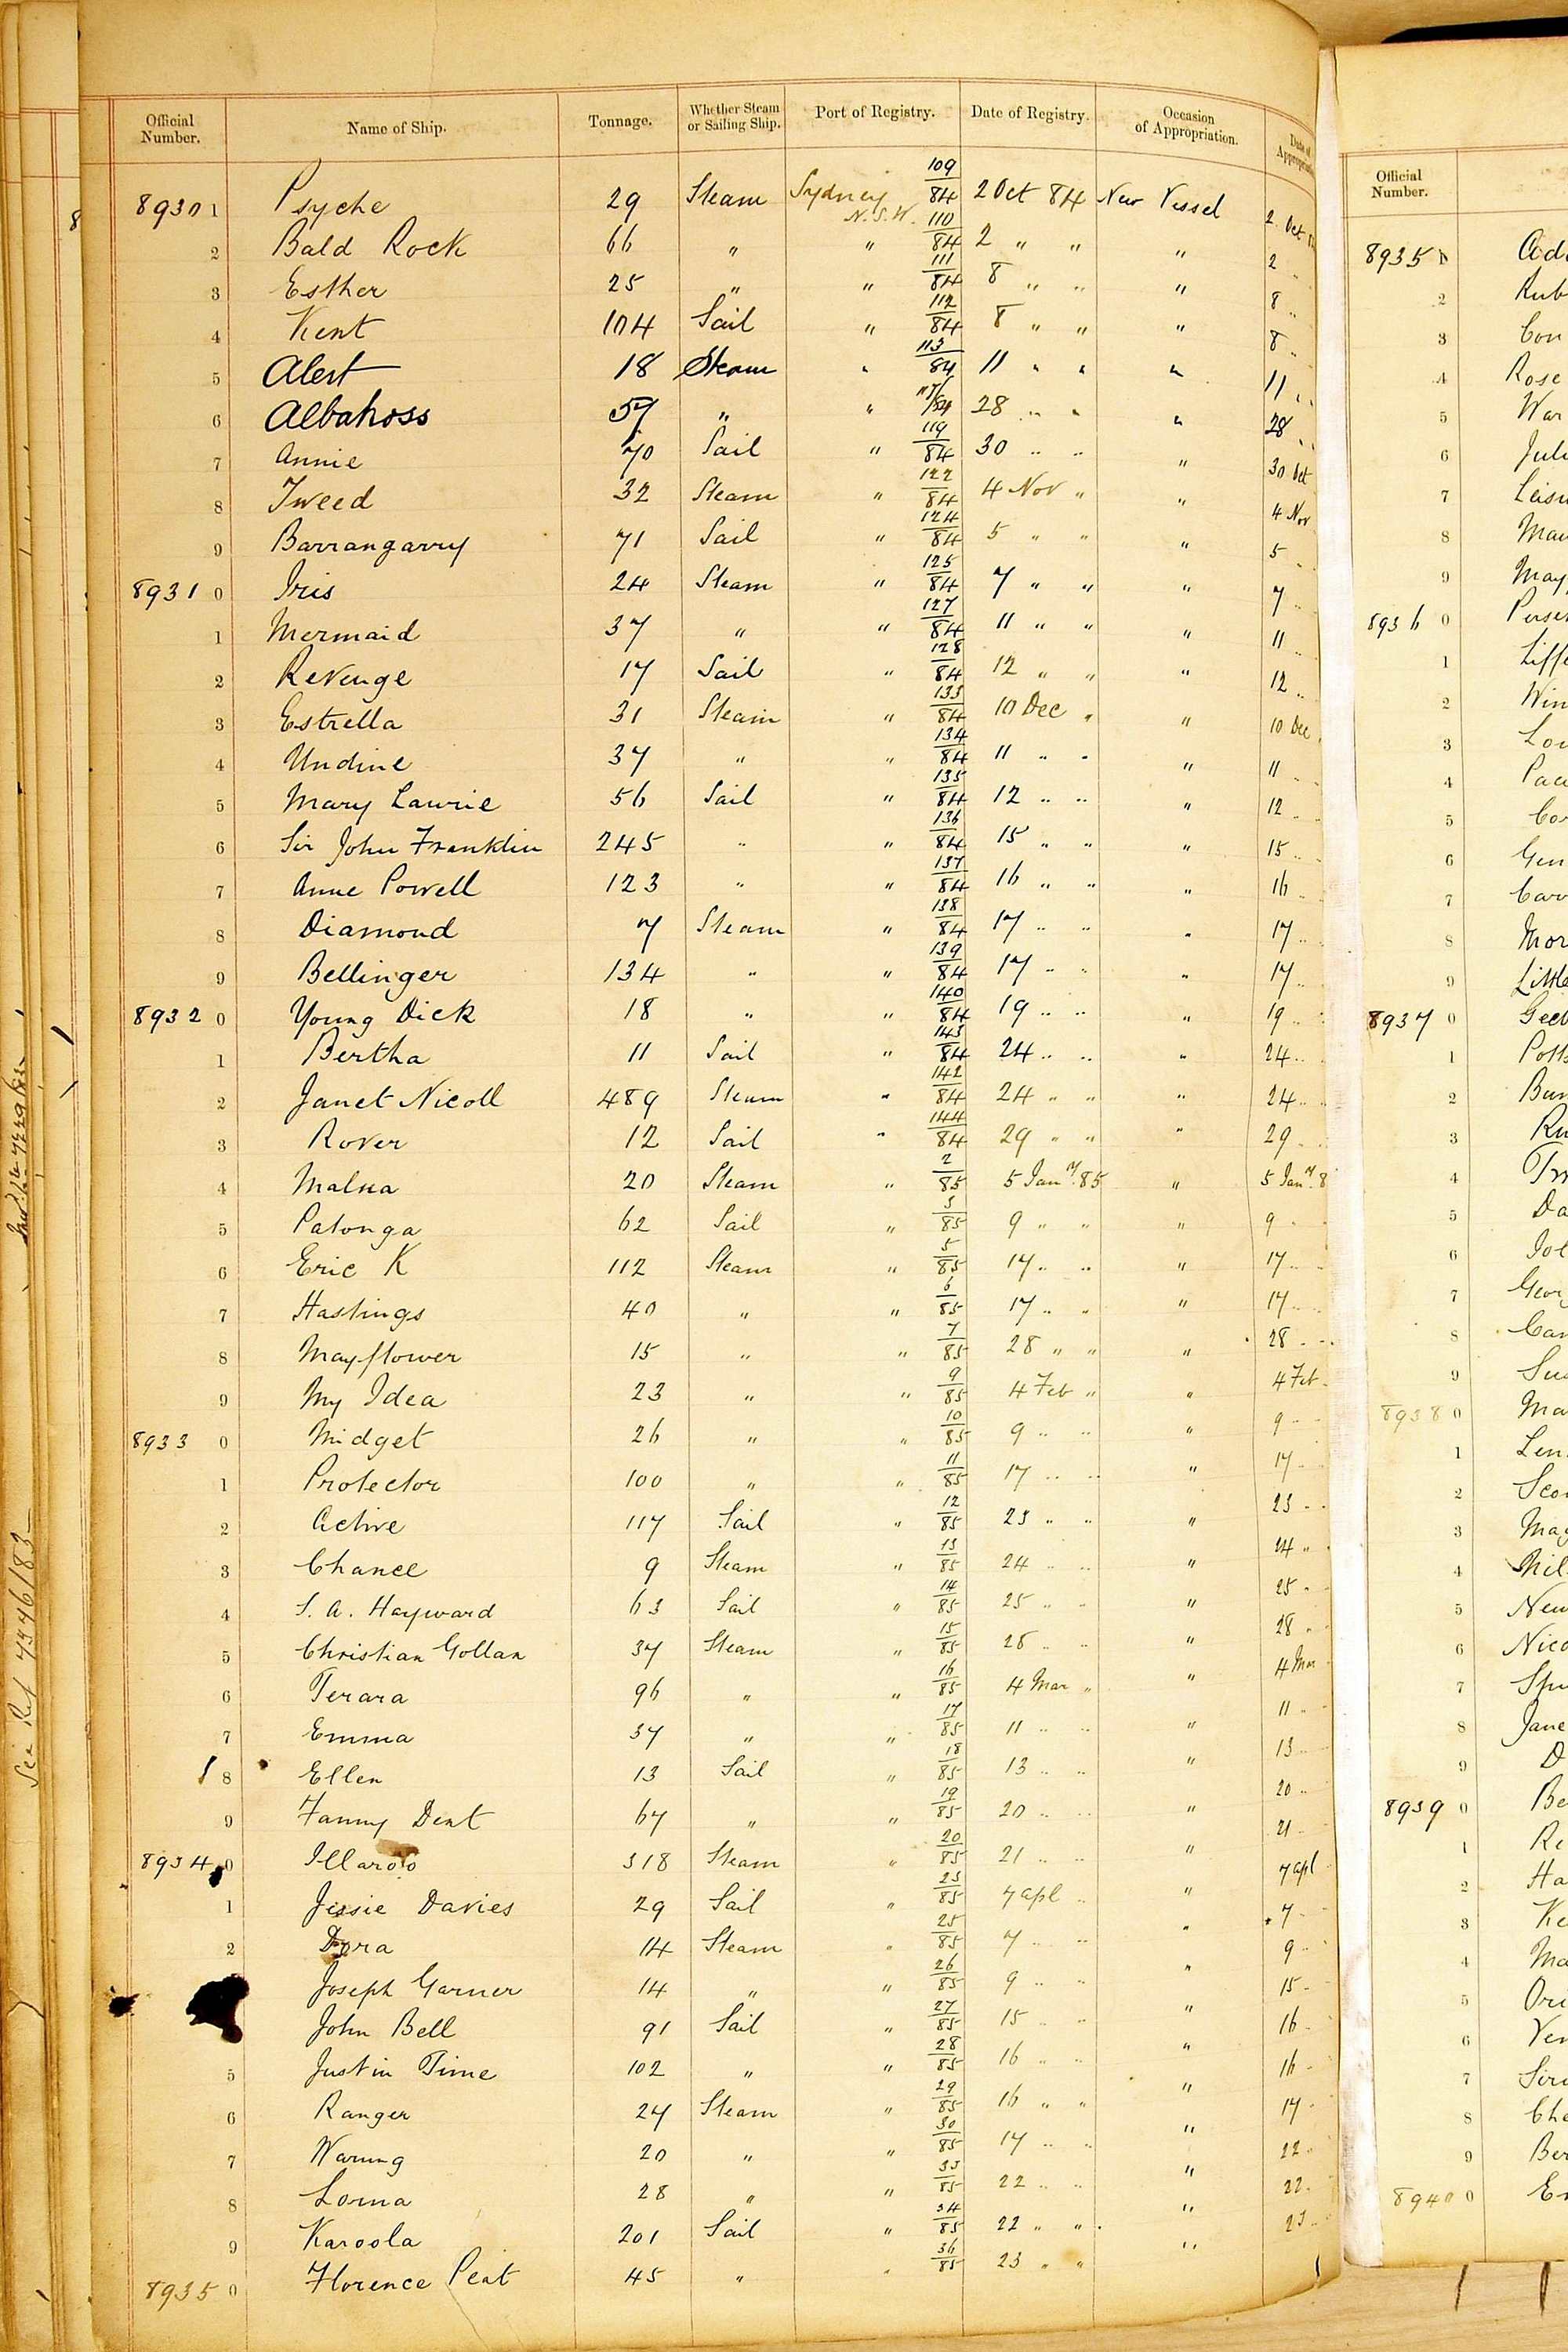 Official Number. Name of Ship. Tonnage. Whether Steam or Sailing Ship. Port of Registry. Date of Registry. Occasion of Appropriation. Date of
8930 1 Psyche 29 Steam Sydney N.S.W. 109/84 2 Oct 84 New Vessel 2 Oct
2 Bald Rock 66 " " 110/84 2 " " " 2 "
3 Esther 25 " " 111/84 8 " " " 8 "
4 Kent 104 Sail " 112/84 8 " " " 8 "
5 Alert 18 Steam " 113/84 11 " " " 11 "
6 Albatross 59 " " 117/84 28 " " " 28 "
7 Annie 70 Sail " 119/84 30 " " " 30 Oct
8 Tweed 32 Steam " 122/84 4 Nov " " 4 Nov
9 Barrangarry 71 Sail " 124/84 5 " " " 5 "
8931 0 Iris 24 Steam " 125/84 7 " " " 7 "
1 Mermaid 37 " " 127/84 11 " " " 11 "
2 Revenge 17 Sail " 128/84 12 " " " 12 "
3 Estrella 31 Steam " 133/84 10 Dec " " 10 Dec
4 Undine 37 " " 134/84 11 " " " 11 "
5 Mary Lawrie 56 Sail " 135/84 12 " " " 12 "
6 Sir John Franklin 245 " " 136/84 15 " " " 15 "
7 Anne Powell 123 " " 137/84 16 " " " 16 "
8 Diamond 7 Steam " 138/84 17 " " " 17 "
9 Bellinger 134 " " 139/84 17 " " " 17 "
8932 0 Young Dick 18 " " 140/84 19 " " " 19 "
1 Bertha 11 Sail " 143/84 24 " " " 24 "
2 Janet Nicoll 489 Steam " 142/84 24 " " " 24 "
3 Rover 12 Sail " 144/84 29 " " " 29 "
4 Malua 20 Steam " 2/85 5 Jany. 85 " 5 Jany. 8
5 Patonga 62 Sail " 3/85 9 " " " 9 "
6 Eric K 112 Steam " 5/85 17 " " " 17 "
7 Hastings 40 " " 6/85 17 " " " 17 "
8 Mayflower 15 " " 7/85 28 " " " 28 "
9 My Idea 23 " " 9/85 4 Feb " " 4 Feb
8933 0 Midget 26 " " 10/85 9 " " " 9 "
1 Protector 100 " " 11/85 17 " " " 17 "
2 Active 117 Sail " 12/85 23 " " " 23 "
3 Chance 9 Steam " 13/85 24 " " " 24 "
4 S. A. Hayward 63 Sail " 14/85 25 " " " 25 "
5 Christian Gollan 37 Steam " 15/85 28 " " " 28 "
6 Terara 96 " " 16/85 4 Mar " " 4 Mar
7 Emma 37 " " 17/85 11 " " " 11 "
8 Ellen 13 Sail " 18/85 13 " " " 13 "
9 Fanny Dent 67 " " 19/85 20 " " " 20 "
8934 0 Illaroo 318 Steam " 20/85 21 " " " 21 "
1 Jessie Davies 29 Sail " 23/85 7 Apl " " 7 Apl
2 Dora 14 Steam " 25/85 7 " " " 7 "
Joseph Garner 14 " " 26/85 9 " " " 9 "
John Bell 91 Sail " 27/85 15 " " " 15 "
5 Just in Time 102 " " 28/85 16 " " " 16 "
6 Ranger 24 Steam " 29/85 16 " " " 16 "
7 Warung 20 " " 30/85 17 " " " 17 "
8 Lorna 28 " " 33/85 22 " " " 22 "
9 Karoola 201 Sail " 34/85 22 " " " 22 "
8935 0 Florence Peat 45 " " 36/85 23 " " " 23 "
See Ref 7346/83
Official Number.
8935 1
2 Rub
3 Con
4 Rose
5 War
6 Juli
7 Leisu
8 Mau
9 May
8936 0 Perse
1 Liffe
2 Win
3 Lou
4 Pac
5 Cor
6 Gen
7 Car
8 Mor
9 Little
8937 0
1 Potts
2 Bun
3 Ru
4
5 Da
6
7 Geor
8 Can
9 Sus
8938 0 Ma
1 Len
2 Scou
3 Mag
4
5 New
6 Nico
7
8 Jane
9 D
8939 0 Be
1 Re
2 Ha
3 Ke
4 Ma
5 Ori
6 Ven
7 Siri
8 Che
9 Ber
8940 0